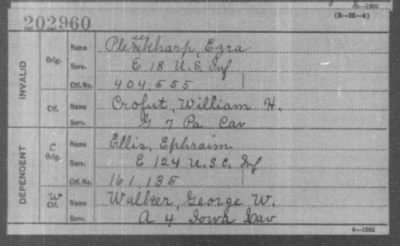 (3-88-4)
202960
INVALID
Orig.
Name
Serv.
E 18 U.S. Inf
Ctf. No.
404,555
Ctf.
Name
Crofut, William H.
Serv.
G 7 Pa Cav
DEPENDENT
C Orig.
Name
Ellis, Ephraim
Serv.
E 124 U.S.C. Inf
Ctf. No.
161,135
W Ctf.
Name
Walker, George W.
Serv.
A 4 Iowa Cav